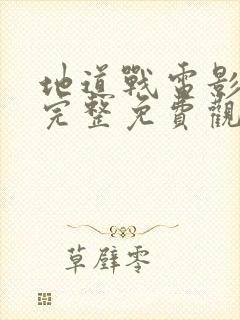 地道戰電影
完整免費觀
草壁零